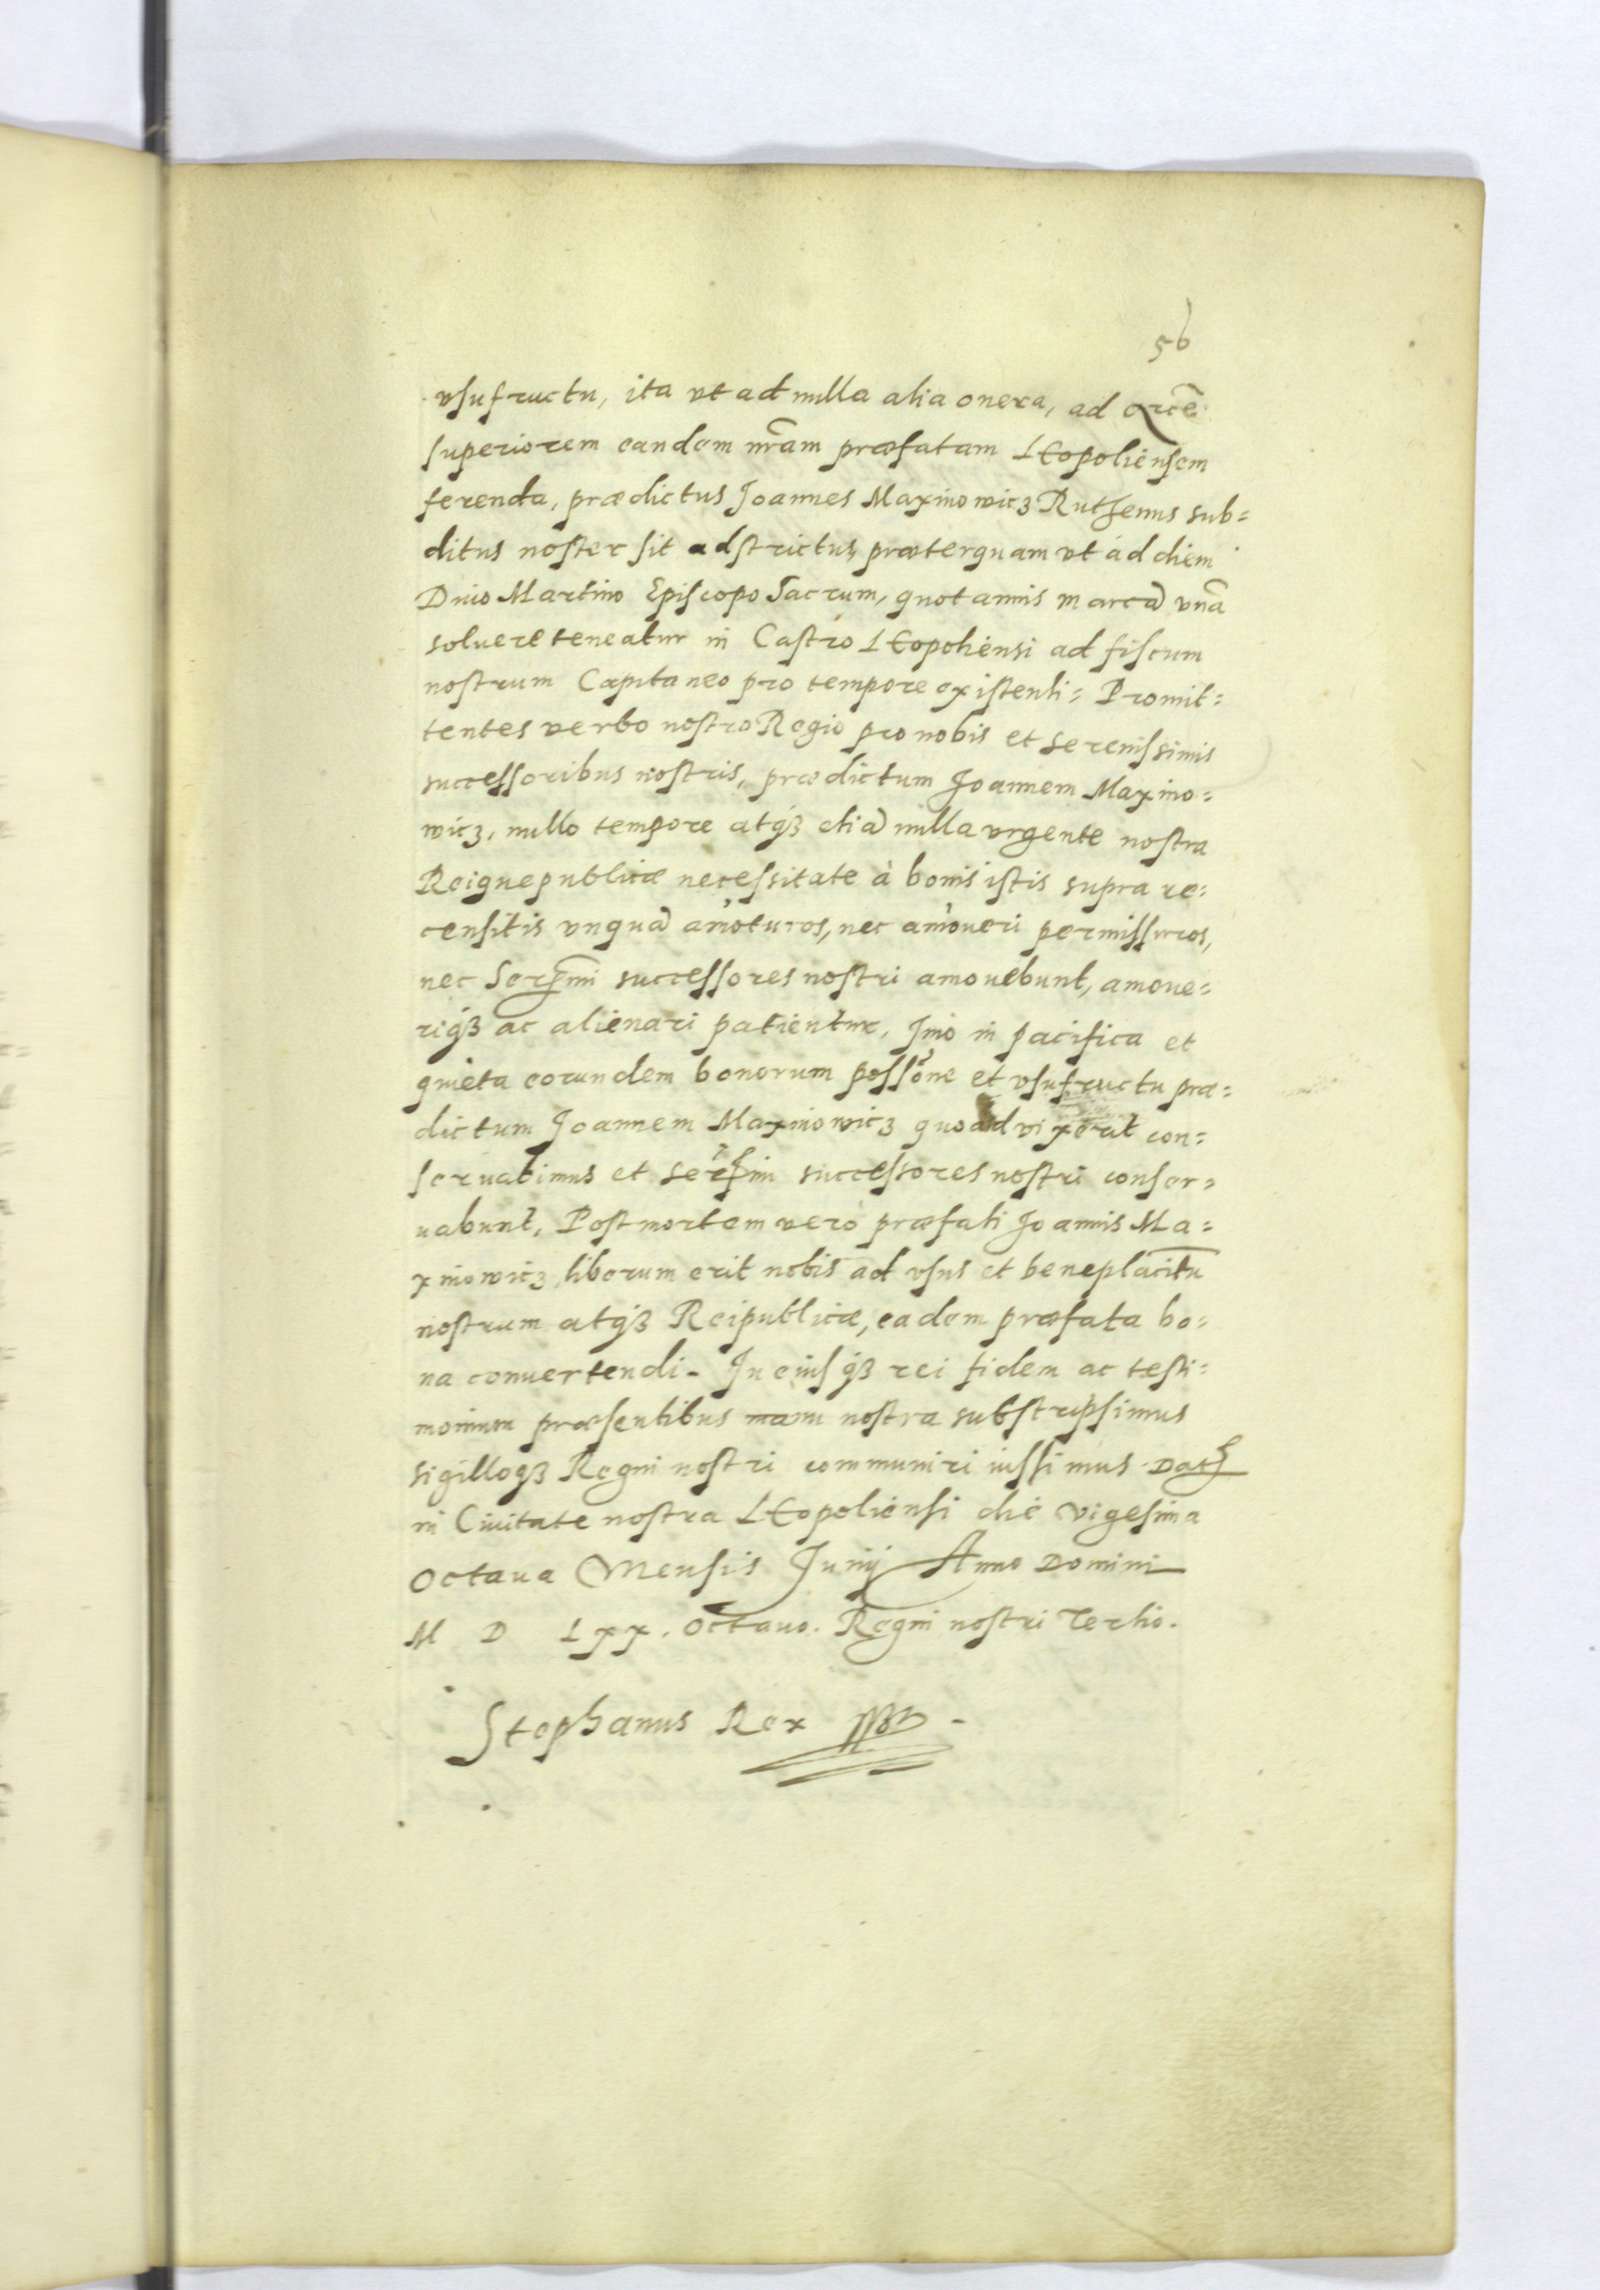 56
vsufructu, ita vt ad nulla alia onera, ad arcẽ
superiorem eandem nr̃am præfatam LEopoliensem
ferenda, prædictus Joannes Maxinowicz Ruthenus sub=
ditus noster sit adstrictus præterquam vt ad diem
Diuo Martino Episcopo Sacrum, quotannis marcã vnã
soluere teneatur in Castro LEopoliensi ad fiscum
nostrum Capitaneo pro tempore existenti= Promit=
tentes verbo nostro Regio pro nobis et serenissimis
successoribus nostris, prædictum Joannem Maxino=
wicz, nullo tempore atq3 etiã nulla vrgente nostra
Reiquepublicæ necessitate à bonis istis supra re=
censitis vnquã amoturos, nec amoueri permissuros,
nec Serẽmi successores nostri amouebunt, amoue=
riq3 ac alienari patientur, Jmo in pacifica et
quieta eorundem bonorum possõne et vsufructu præ=
dictum Joannem Maxinowicz quoad vixerit con=
seruabimus et serẽmi successores nostri conser=
uabunt, Post mortem vero præfati Joannis Ma=
xinowicz liberum erit nobis ad vsus et beneplacitũ
nostrum atq3 Reipublicæ, eadem præfata bo=
na conuertendi. In eiusq3 rei fidem ac testi=
monium præsentibus manu nostra subscripsimus
sigilloq3 Regni nostri communiri iussimus Dat
in Ciuitate nostra LEopoliensi die vigesima
Octaua Mensis Junij Anno Domini
M D Lxx. Octauo. Regni nostri Tertio.
Stephanus Rex